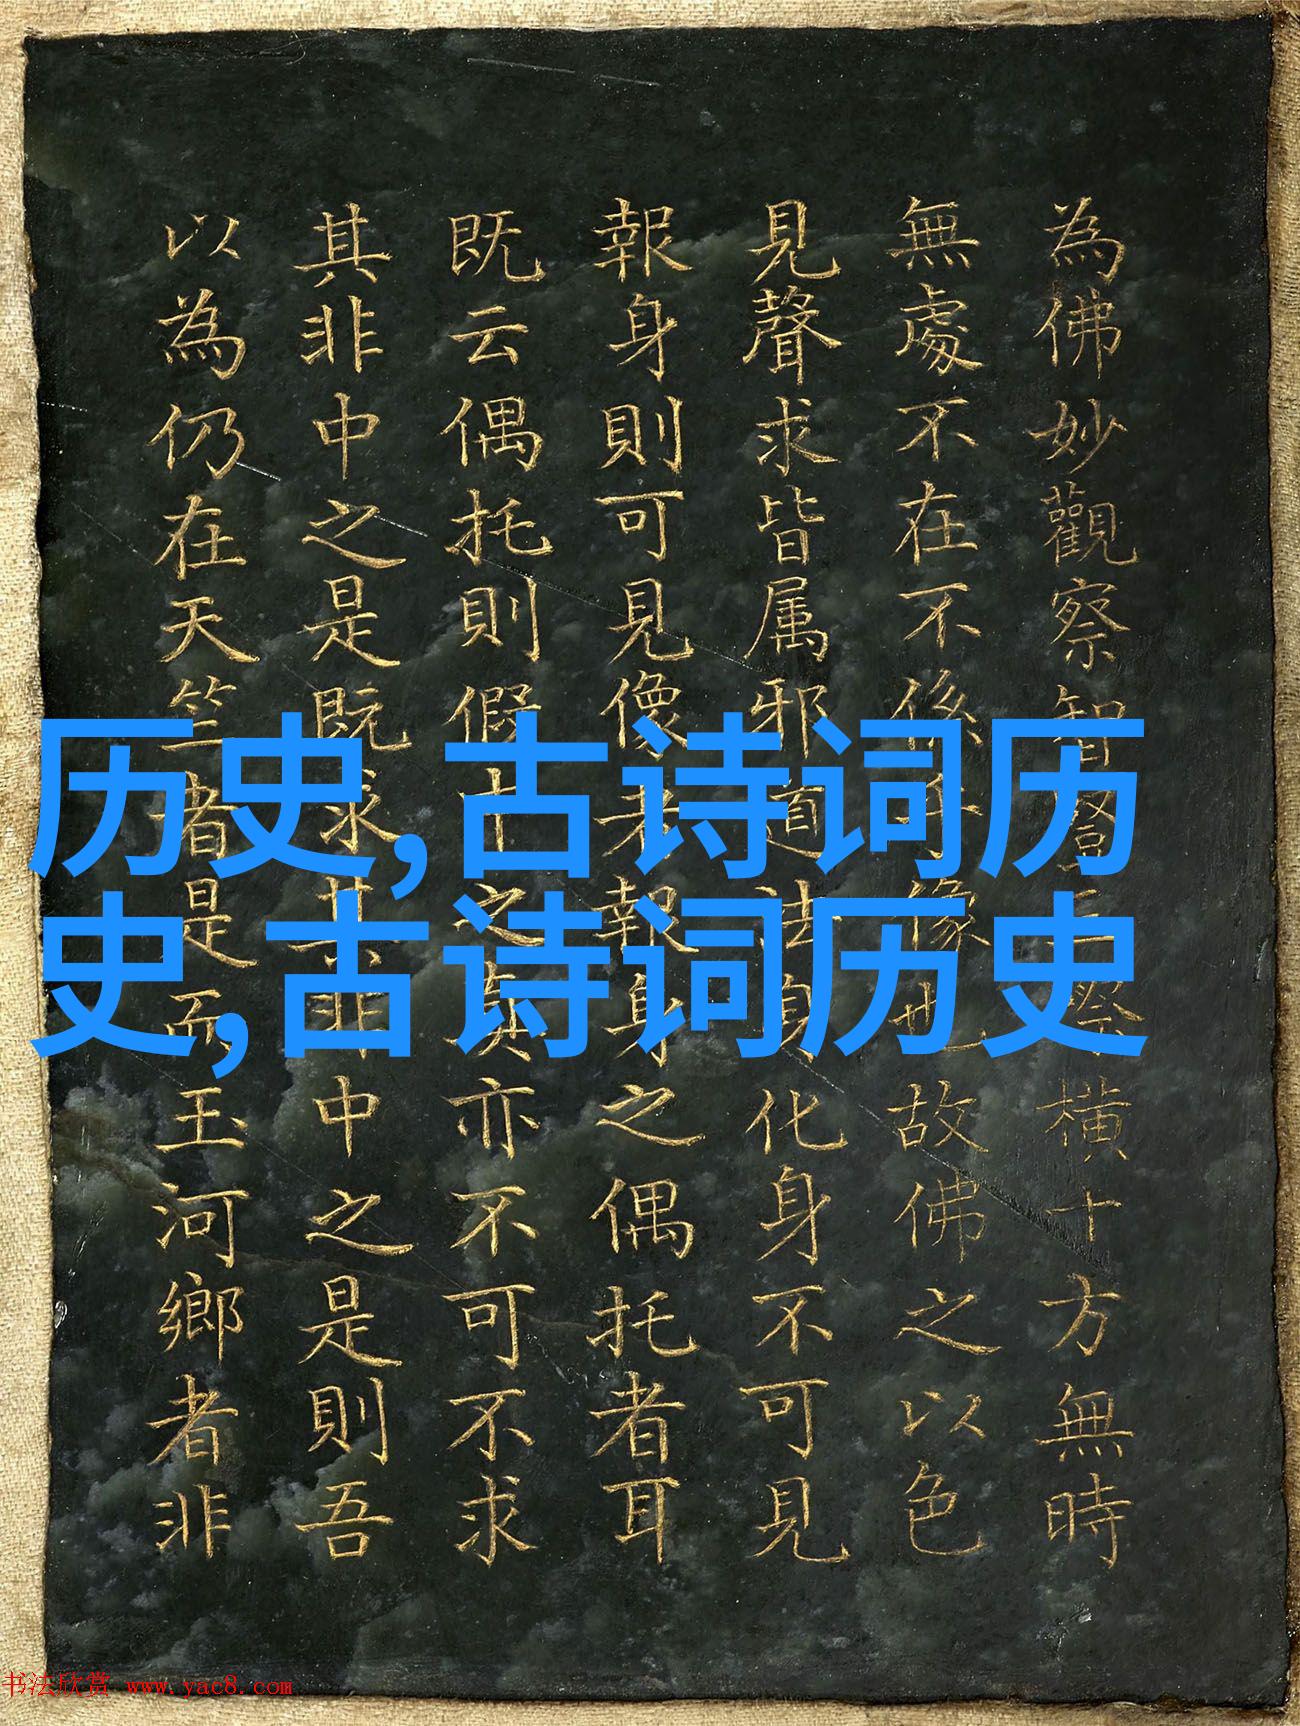 為佛妙觀察智聲橫十方無時
無處不在不係於像也故佛之以色
見聲求皆属邪道法身化身不可見
報身則可見像者報身之偶托者耳
既云偶托則假中之真亦不可不求
其非中之是既求其非中之是則吾
以為仍在天竺者是而玉河鄉者非
历史,古诗词历
史,古诗词历史
书法欣赏 www.yac8.com